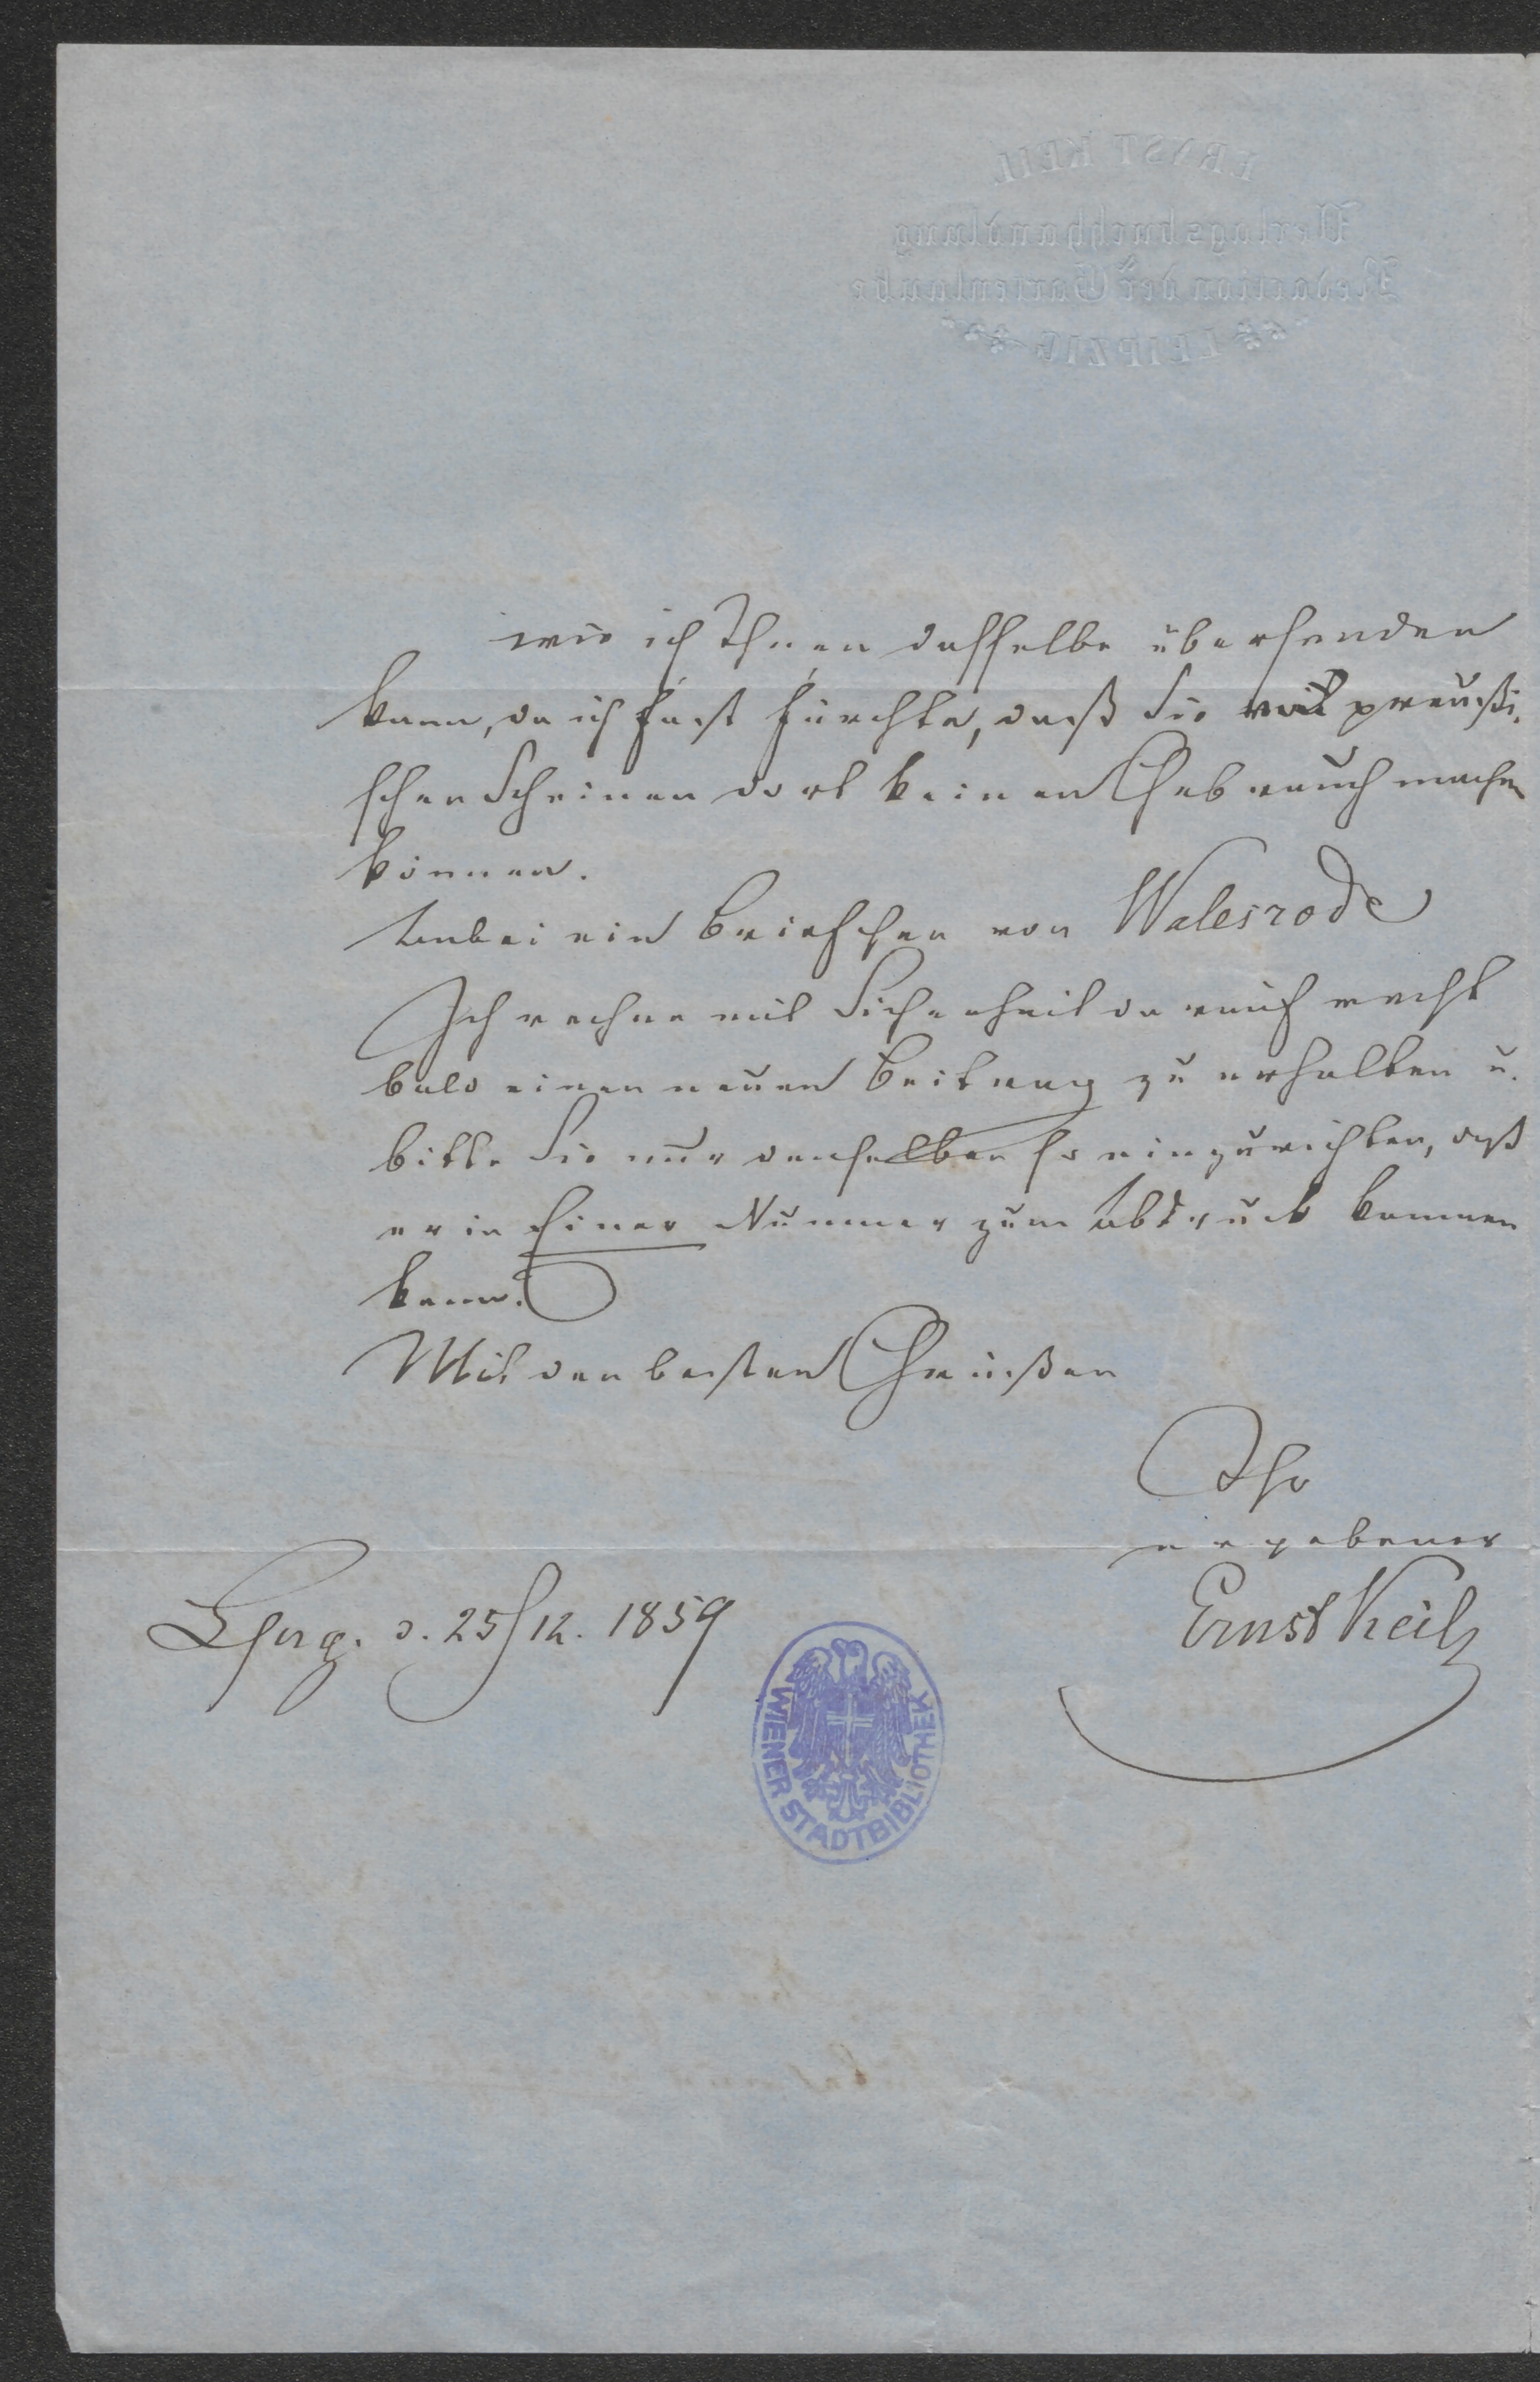 ERNST KEIL
Verlagsbuchhandlung
Redaction der Gartenlaube
LEIPZIG
wie ich Ihnen dasselbe übersenden
kann, da ich fast fürchte, daß Sie mit preußi-
schen Scheinen dort keinen Gebrauch machen
können.
Anbei ein Briefchen von Walesrode
Ich rechne mit Sicherheit darauf recht
bald einen neuen Beitrag zu erhalten u.
bitte Sie nur denselben so einzurichten, daß
er in Einer Nummer zum Abdruck kommen
kann.
Mit den besten Grüßen
Ihr
ergebener
Ernst Keil
Lpzg. d. 25/12. 1859
WIENER STADTBIBLIOTHEK